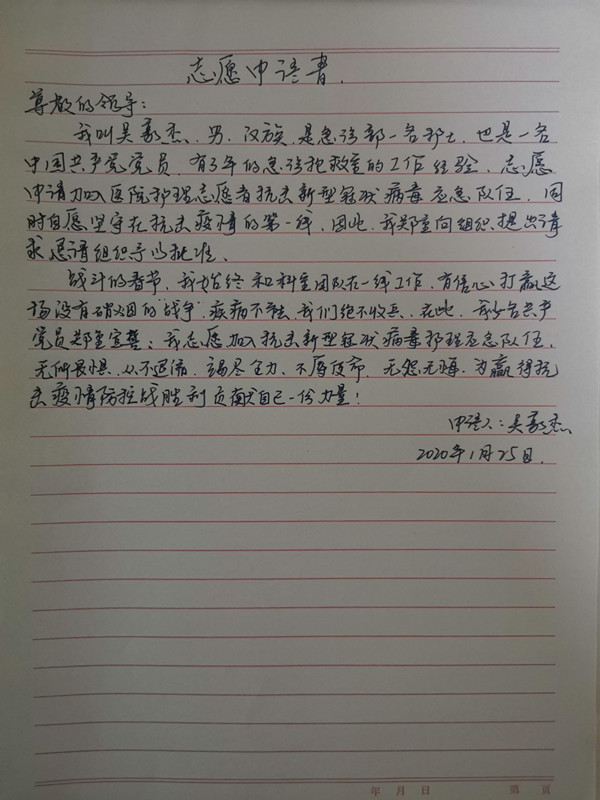 志愿申请书.
尊敬的领导：
我叫吴豪杰、男、汉族,是急诊部一名护士,也是一名
中国共产党党员,有3年的急诊抢救室的工作经验,志愿
申请加入医院护理志愿者抗击新型冠状病毒应急队伍,同
时自愿坚守在抗击疫情的第一线,因此,我郑重向组织提出请
求恳请组织予以批准、
战斗的春节,我始终和科室团队在一线工作,有信心打赢这
场没有硝烟的“战争”,疾病不去,我们绝不收兵、在此,我以名共产
党员郑重宣誓：我志愿加入抗击新型冠状病毒护理应急队伍,
无所畏惧、从不退缩、竭尽全力、不辱使命、无怨无悔、为赢得抗
击疫情防控战胜利贡献自己一份力量！
申请人：吴豪杰
2020年1月25日.
年 月 日 第 页